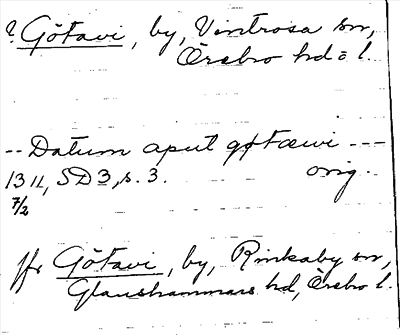 ? Götavi, by, Vintrosa sn,
Örebro hd o l.
-- Datum aput gøtæwi ---
1311, SD 3, s. 3. orig.
7/2
jfr Götavi, by, Rinkaby sn,
Glanshammars hd, Örebro l.